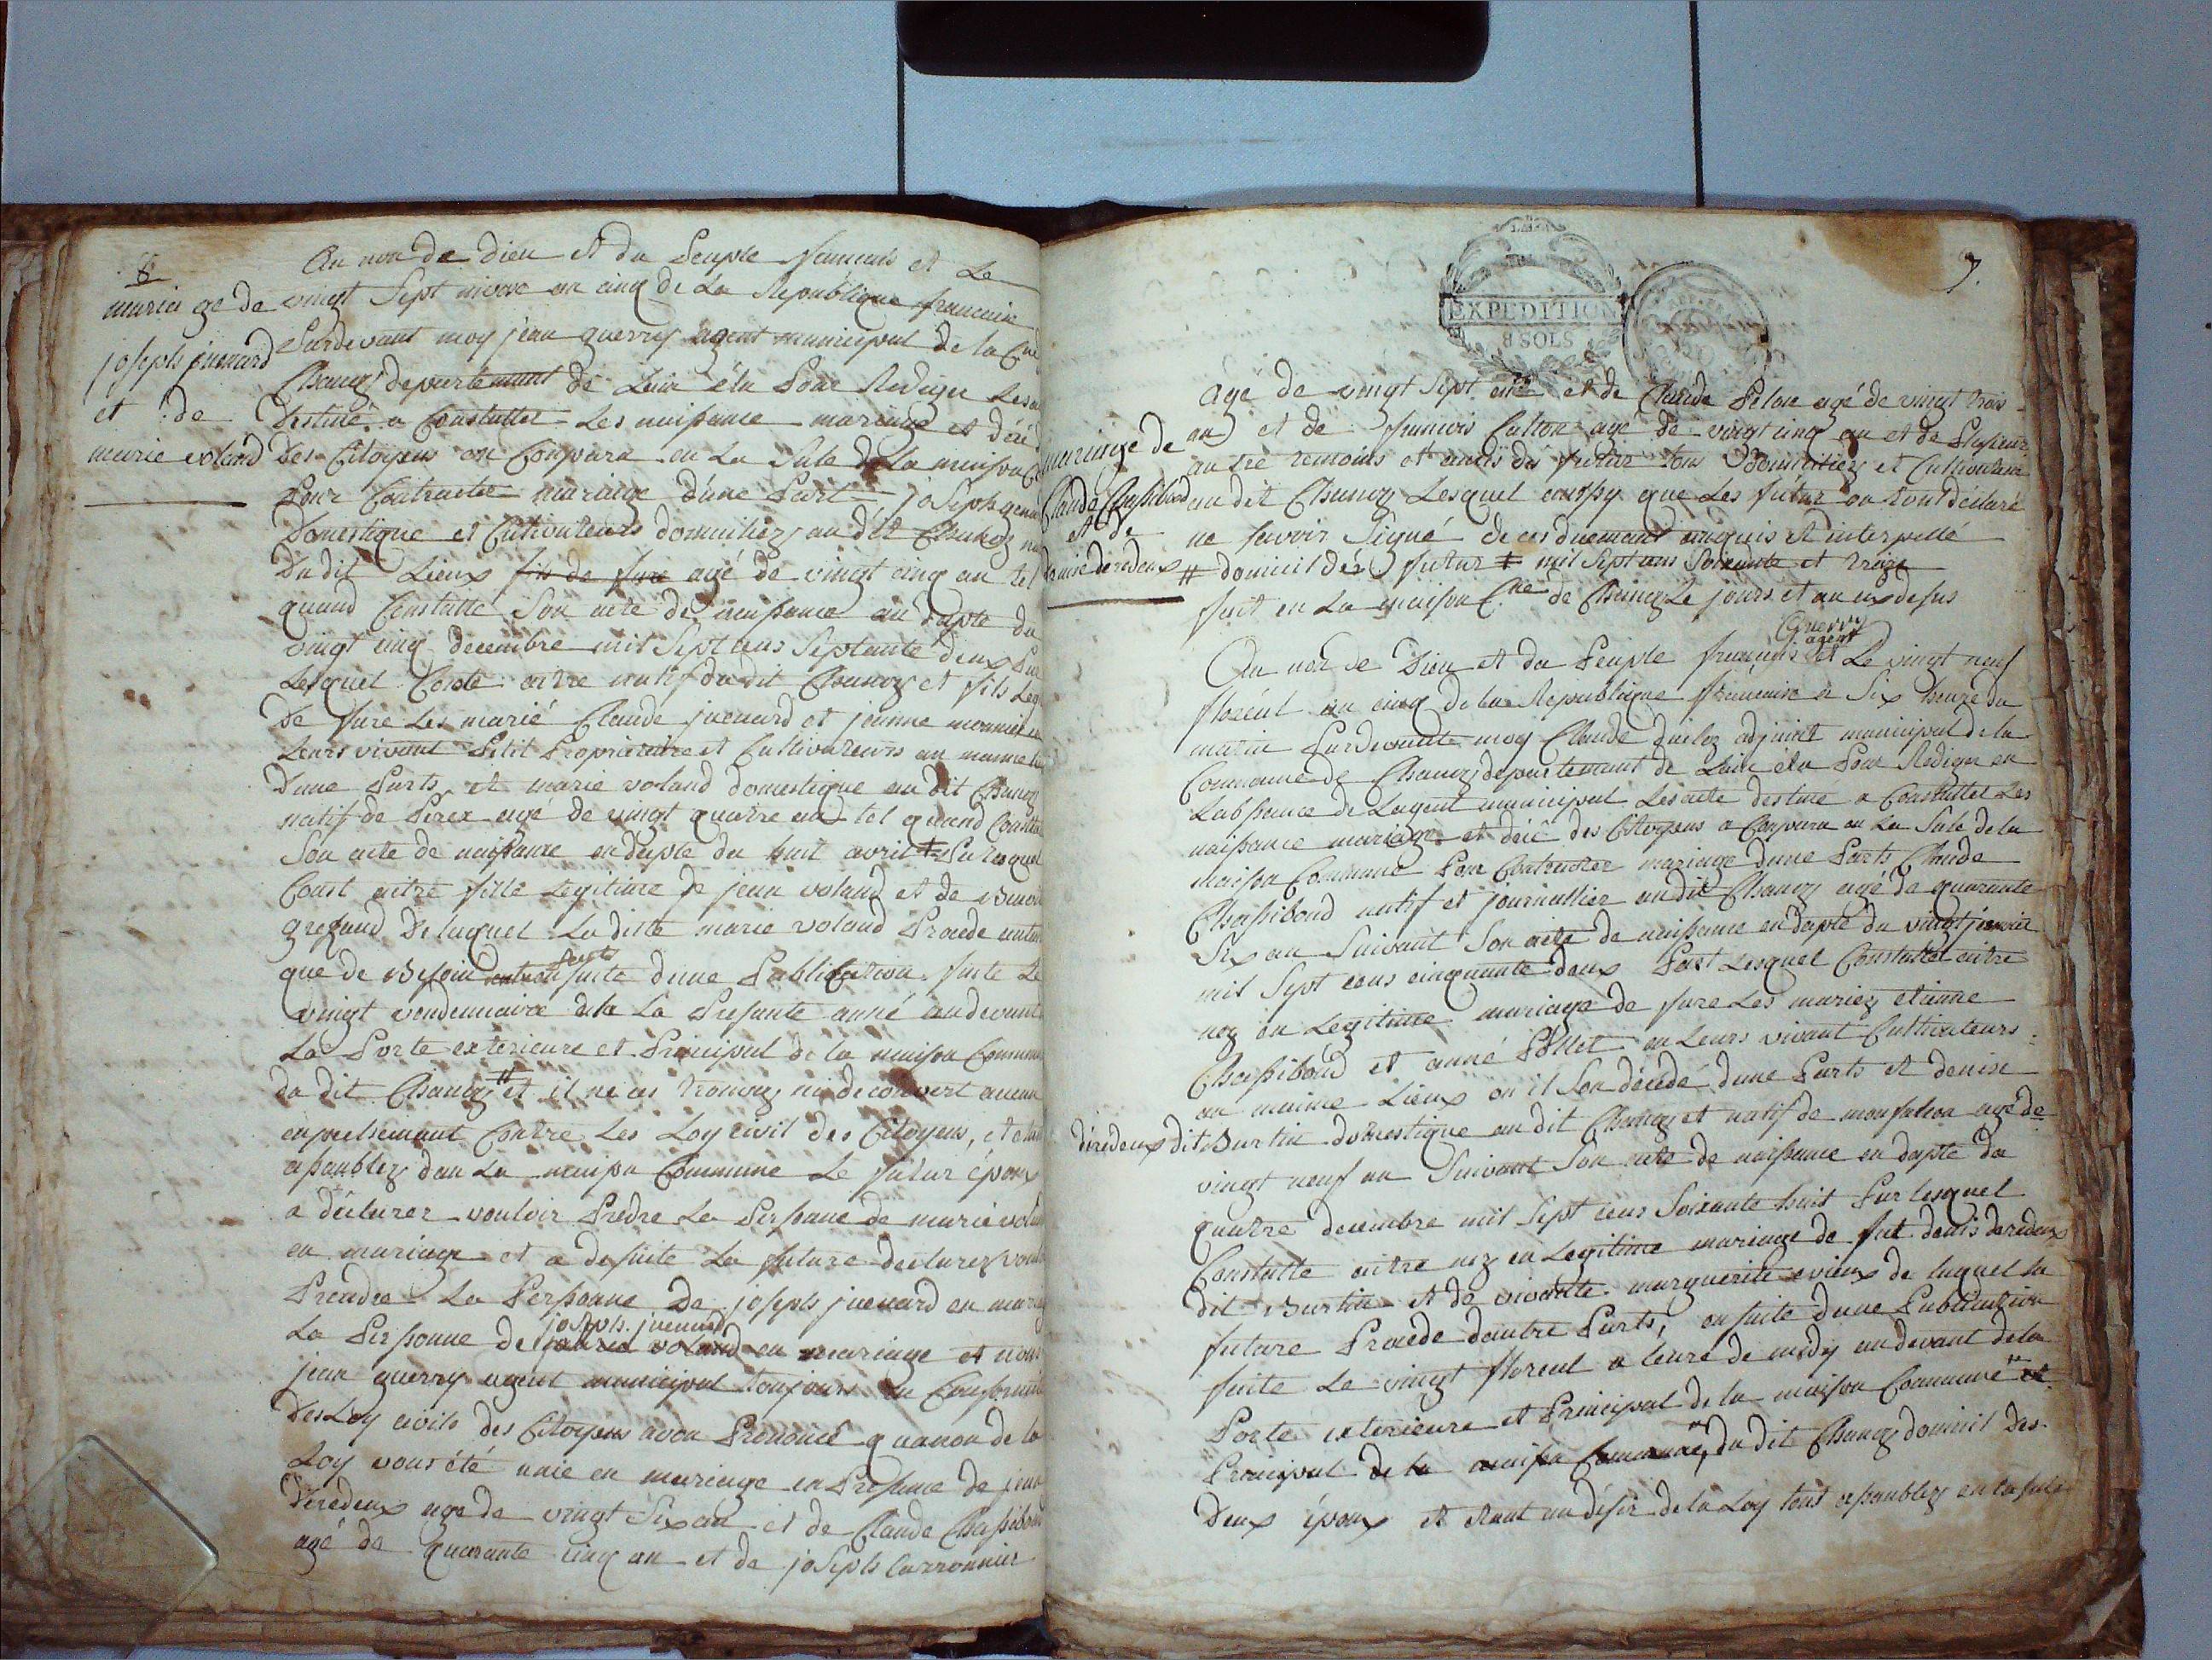 6
mariage de
joseph juenard
et de
marie voland
Au non de dieu et du Peuple francais et Le
vingt Sept nivose an cinq de La Republique francaise
Pardevant moy jean guerry agent municipal de la Cne
Chanoz departement de Lain élu Pour Rediger Les a
destiné a Constatter Les naissance mariage et décé
Des Citoyens on Conpara en La Sale de La maison C
Pour Contracter mariage d'une Part joseph jenard
Domestique et Cultivateurs domicilier au dit Chanoz na
Du dit Lieux fils de fure agé de vingt cinq an tel
quand Constatte Son acte de naissance en dapte du
vingt cinq decembre mil Sept cens Septante deux Par
Lesquel Conste aitre natif du dit Chanoz et fils Leg
De fure Les marié Claude juenard et jeanne monnier en
Leurs vivant Petit Proprietaire et Cultivateurs au mame lieu
Dune Parts et marie voland domestique au dit Chanoz
natif de Perex agé de vingt quatre an tel quand Constat
Son acte de naissance en dapte du huit avril ‡ Par lesquel
Const aitre fille Legitime de jean voland et de Benoit
grefaud De laquel La ditte marie voland Procede autan
que de Besoin Parts
suite dune Publication faite Le
vingt vendemiaire de La Presante anné au devant
La Porte exterieure et Principal de la maison Commun
du dit Chanoz # et il ne ces trouvez ni decouvert aucun
enpeschemant Contre Les Loy civil des Citoyens, et étan
assanblez dan La maison Commune Le futur époux
a déclarer vouloir Prédre La Perssone de marie volan
en mariage et a de suite La future declarez voul
Prendre La Perssonne De joseph juenard en maria
joseph juenard
La Perssonne de voland en mariage et nous
jean guerry agent municipal toujours en Conformité
Des Loy civils des Citoyens avon Prononcé quanon de la
Loy vous été unie en mariage en Presance de jean
Deredeux age de vingt Six an et de Claude Chassibou
agé de quarante cinq an et de joseph Carronnier
7.
EXPEDITION
8 SOLS
agé de vingt Sept ans et de Claude Pelon agé de vingt trois
an et de francois Catton agé de vingt cinq an et de Plusieur
autre temoins et amis du futur tous Domicilier et Cultivateur
au dit Chanoz Lesquel aussy que Les futur on tout déclaré
ne savoir Signé de ces duemant enquis et interpellé
# domicil dés futur ‡ mil Sept cens Soixante et treize
fait en La maison Cne de Chanoz Le jours et an cy desus
Guerry
agent
mariage de
Claude Chassiboud
et de
denise deredeux
Au non de Dieu et du Peuple francais et Le vingt neuf
floréal an cinq de la Republique francaise a Six heure du
matin Pardevante moy Claude adjoint municipal de la
Commune de Chanoz departemant de Lain élu Pour Rediger en
Labssance de Lagent municipal Les acte destine a Constatter Les
naissance mariage et décé des Citoyens a Conpara en La Sale de la
maison Commune Pour Contracter mariage dune Parts Claude
Chassiboud natif et journallier au dit Chanoz agé de quarante
Six an Suivant Son acte de naissance en dapte du vingt janvier
mil Sept cens cinquante deux Par Lesquel Constatte aitre
nez en Legitime mariage de fure Les mariez etienne
Chassiboud et anne Pollet en Leurs vivant Cultivateurs
au maime Lieux ou il Son décédé dune Parts et denise
deredeux dit Burtin domestique au dit Chanoz et natif de monfalcon agé de
vingt neuf an Suivant Son acte de naissance en dapte du
quatre decembre mil Sept cens Soixante huit Par lesquel
Constatte aitre nez en Legitime mariage de fut denis deredeux
dit Burtin et de vivante marguerite vieux de laquel la
future Procede dautre Parts, ensuite dune Publication
faite Le vingt floreal a leure de midy au devant de la
Porte exterieure et Principal de la maison Commune # et
Principal de la maison Commune, du dit Chanoz domicil des
Deux époux et étant au désir de la Loy tous assanblez en la sale